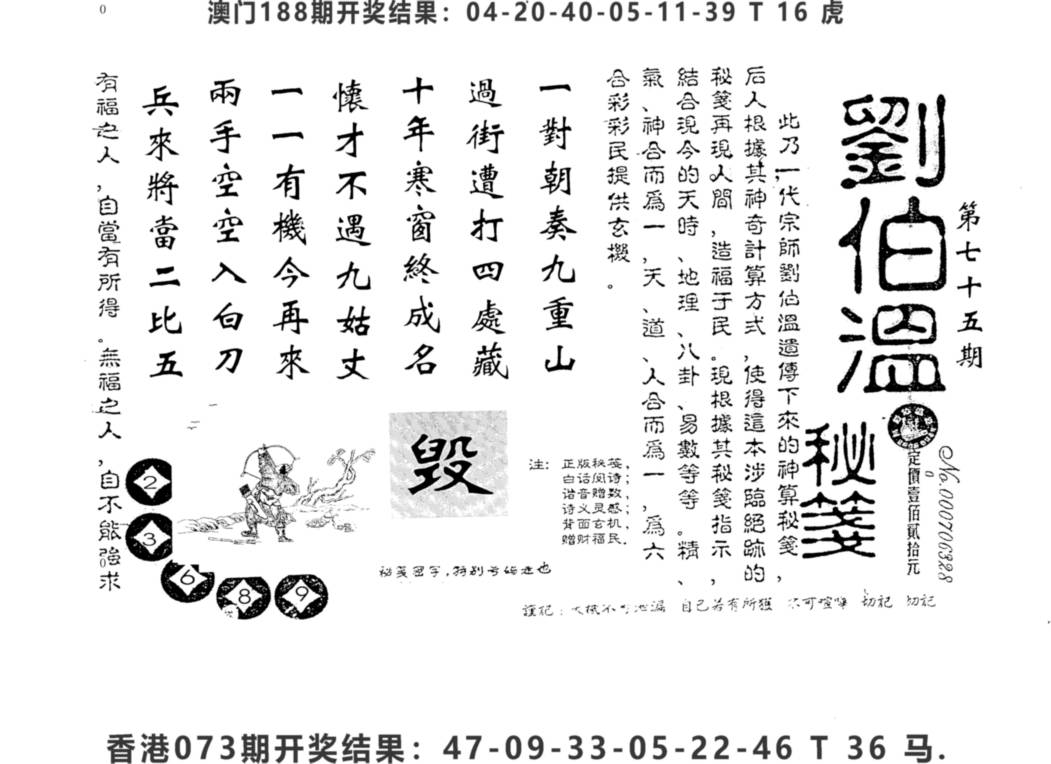 0
澳门188期开奖结果：04-20-40-05-11-39 T 16 虎
第七十五期
劉伯溫
秘箋
No.000706328
定價壹佰貳拾元
此乃一代宗師劉伯溫遺傳下來的神算秘箋，
后人根據其神奇計算方式，使得這本涉臨絕跡的
秘箋再現人間，造福于民。現根據其秘箋指示，
結合現今的天時、地理、八卦、易數等等。精、
氣、神合而爲一，天、道、人合而爲一，爲六
合彩彩民提供玄機。
一對朝奏九重山
過街遭打四處藏
十年寒窗終成名
懷才不遇九姑丈
一一有機今再來
兩手空空入白刀
兵來將當二比五
有福之人，自當有所得。無福之人，自不能強求
毀
注：正版秘笺，
白话阅诗；
谐音赠数，
诗义灵感；
背面玄机，
赠财福民。
2
3
6
8
9
秘笺密字，特别号码走也
謹記：天機不可泄漏 自己若有所獲 不可喧嘩 切記 切記
香港073期开奖结果：47-09-33-05-22-46 T 36 马.